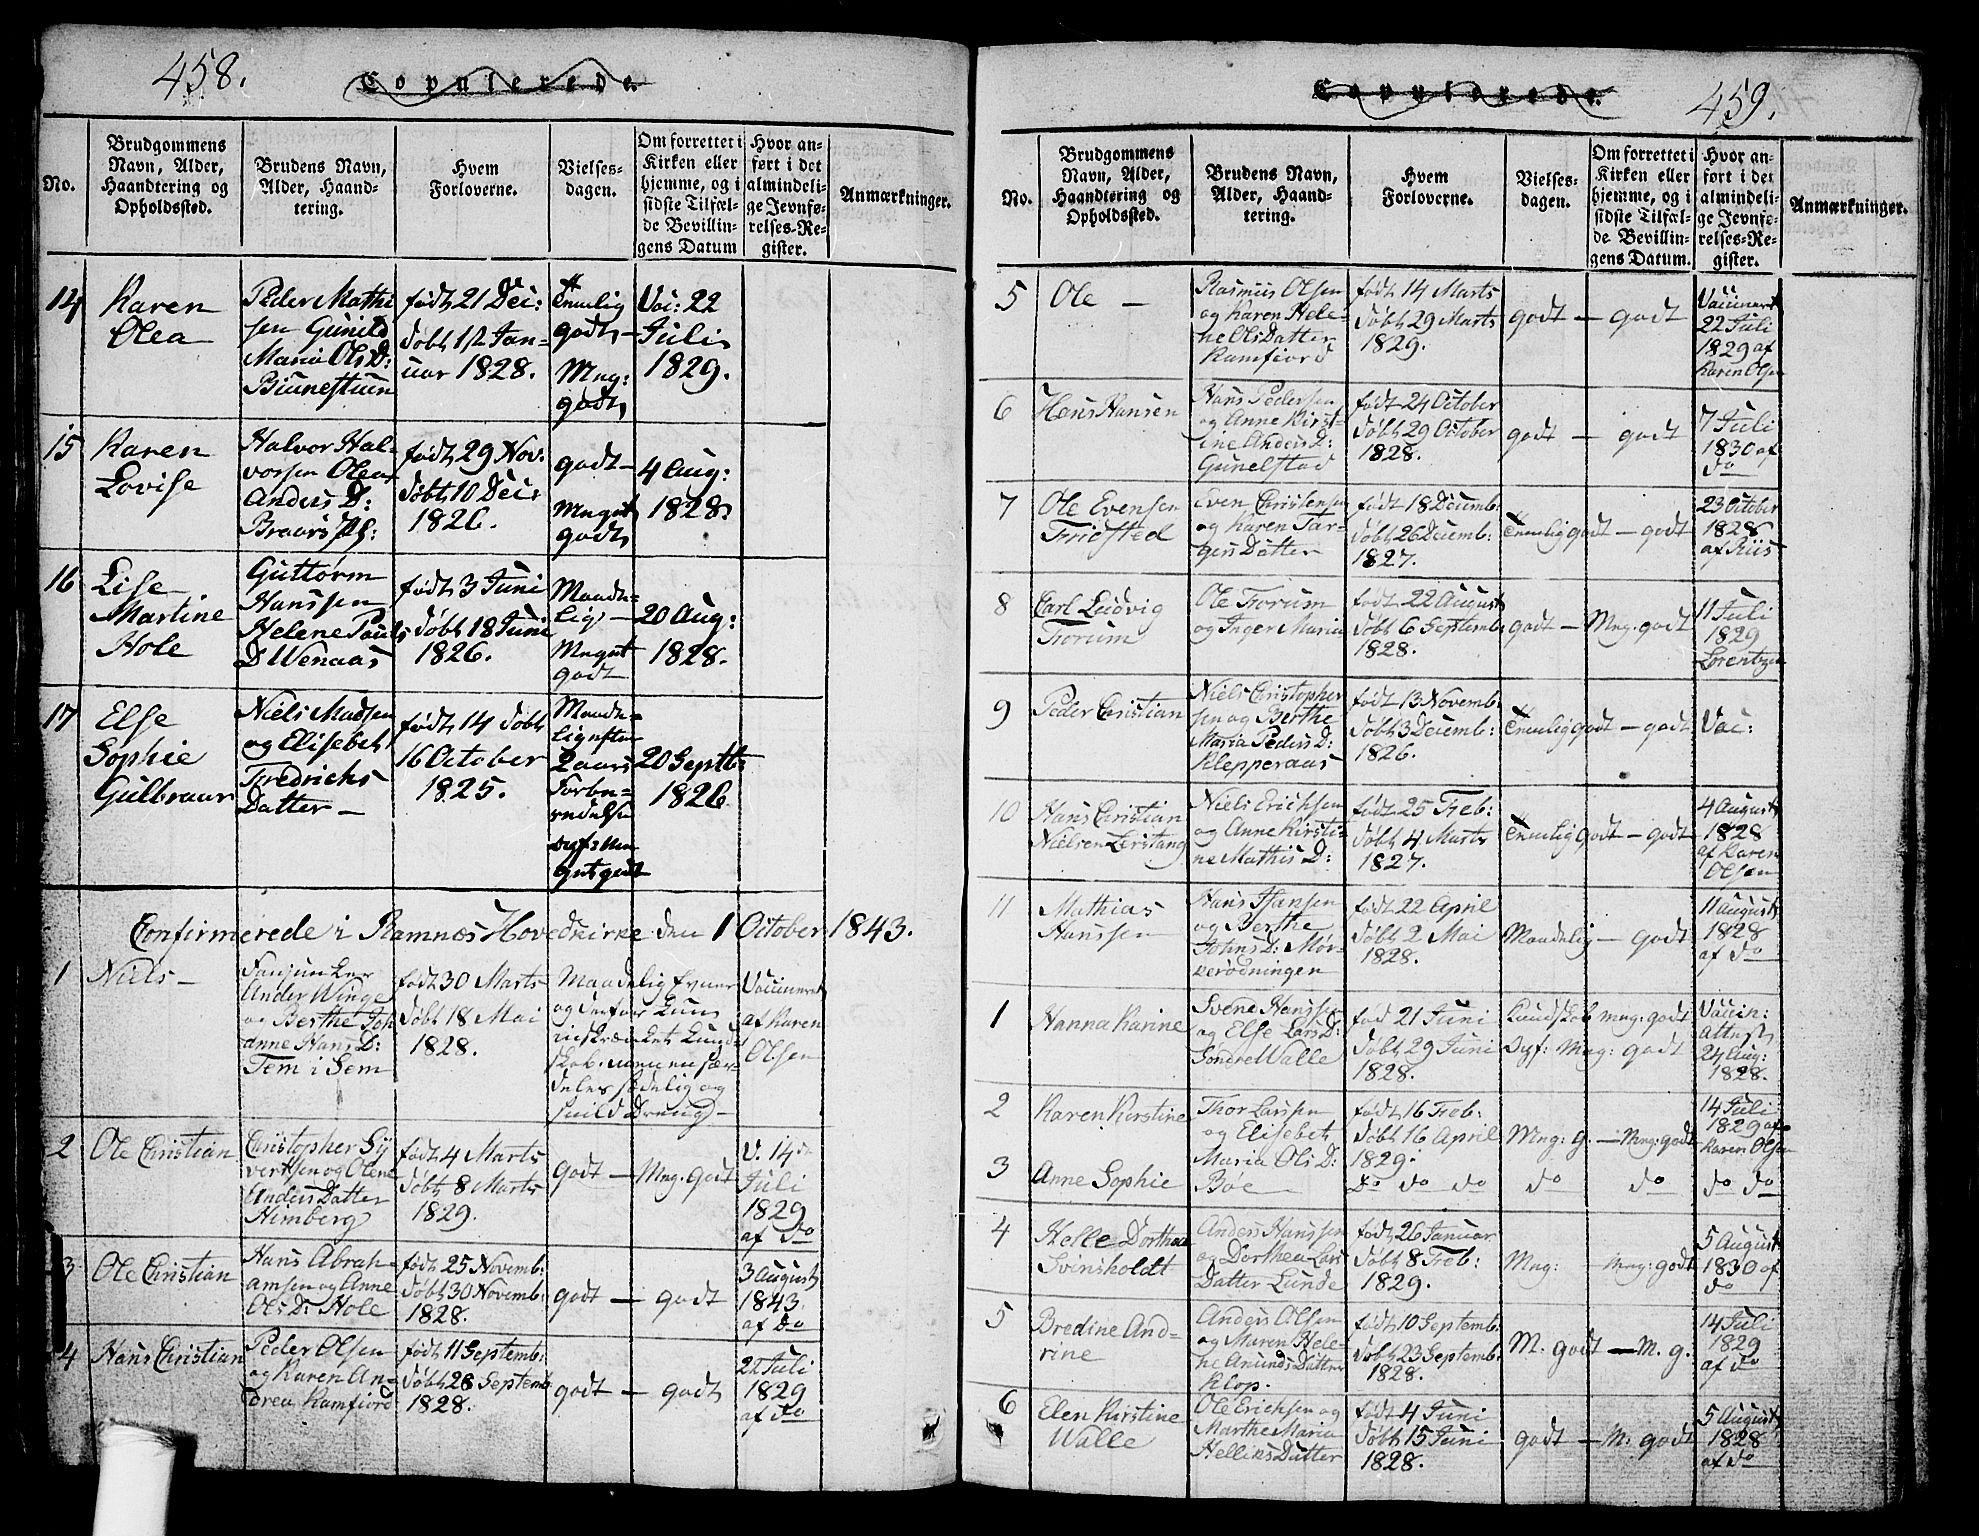 458.
Copulerede.
No.
Brudgommens
Navn, Alder,
Haandtering og
Opholdssted.
Brudens Navn,
Alder, Haand-
tering.
Hvem
Forloverne.
Vielses-
dagen.
Om forrettet i
Kirken eller
hjemme, og i
sidste Tilfæl-
de Bevillin-
gens Datum
Hvor an-
ført i det
almindeli-
ge Jevnfø-
relses-Re-
gister.
Anmærkninger.
14
Karen
Olea
Peder Mathi
sen Gunild
Maria Ols D:
født 21 Dec:
døbt 1/2 Jan-
uar 1828.
Temlig
godt —
Meg:
godt
Vac: 22
Juli
1829.
15
Karen
Lovise
Halvor Hal-
vorsen Olea
Anders D:
født 29 Nov:
døbt 10 Dec:
1826.
godt —
Meget
godt
4 Aug:
1828.
16
Lise
Martine
Hole
Guttorm
Hanssen
Helene Pauls
D Wenaas
født 3 Juni
døbt 18 Juni
1826.
Maade-
lig —
Meget
godt
20 Aug:
1828.
17
Else
Sophie
Gulbraar
Niels Madsen
og Elisebet
Fredrichs
Datter —
født 14 døbt
16 October
1825.
Maade-
lig efter
2 aars
Forbe-
redelse
Opf: Me-
get godt
20 Septb:
1826
Confirmerede i Ramnæs Hovedkirke den 1 October 1843.
1
Niels —
Fanjunker
Ander Winge
og Berthe Joh
anne Hans D:
Tem i Sem
født 30 Marts
døbt 18 Mai
1828.
Maadelig Evner
og derfor kun
inskrænket Kund-
skab. men en sær-
deles sædelig og
snild Dreng —
Vaccineret
af Karen
Olsen
2
Ole Christian
Christopher Sy
vertsen og Olene
Anders Datter
Himberg
født 4 Marts
døbt 8 Marts
1829.
godt — Mng. godt
V. 14de
Juli
1829
af do
3
Ole Christian
Hans Abrah-
amsen og Anne
Ols D: Hole
født 25 Novemb:
døbt 30 Novemb:
1828.
godt — godt
3 August
1843.
af do
4
Hans Christian
Peder Olsen
og Karen An-
drea Ramfiord
født 11 Septemb:
døbt 28 Septemb
1828.
godt — godt
22 Juli
1829
af do
Copulerede.
459.
No.
Brudgommens
Navn, Alder,
Haandtering og
Opholdssted.
Brudens Navn,
Alder, Haand-
tering.
Hvem
Forloverne.
Vielses-
dagen.
Om forrettet i
Kirken eller
hjemme, og i
sidste Tilfæl-
de Bevillin-
gens Datum.
Hvor an-
ført i det
almindeli-
ge Jevnfø-
relses-Re-
gister.
Anmærkninger.
5
Ole —
Rasmus Olsen
og Karen Hele-
ne Ols Datter
Ramfiord
født 14 Marts
døbt 29 Marts
1829.
godt — godt
Vaccineret
22 Juli
1829 af
Karen Olsen
6
Hans Hansen
Hans Pedersen
og Anne Kirst-
ine Anders D:
Gunelstad
født 24 October
døbt 29 October
1828.
godt — godt
7 Juli
1830 af
do
7
Ole Evensen
Fridsted
Even Christensen
og Karen Tar-
ges Datter
født 18 Decemb:
døbt 26 Decemb:
1827.
Temlig godt — godt
23 October
1828
af Riis
8
Carl Ludvig
Frorum
Ole Frorum
og Inger Maria
født 22 August
døbt 6 Septemb:
1828.
godt — Mng. godt
11 Juli
1829
Lorentzen
9
Peder Christian
Niels Christopher
sen og Berthe
Maria Peders D:
Klepperaas
født 13 Novemb:
døbt 3 Decemb:
1826.
Temlig godt — godt
Vac:
10
Hans Christian
Nielsen Lerstang
Niels Erichsen
og Anne Kirsti-
ne Mathis D:
født 25 Feb:
døbt 4 Marts
1827.
Temlig godt — godt
4 August
1828
af Karen
Olsen
11
Mathias
Hanssen
Hans Hansen
og Berthe
Johns D: Mør-
kerødningen
født 22 April
døbt 2 Mai
1828.
Maadelig — godt
11 August
1828
af do
1
Hanna Karine
Svend Hanssen
og Else Lars D:
Søndre Walle
fød 21 Juni
døbt 29 Juni
1828.
Kundskab mng: godt
Opf: Mng: godt
Vaccin:
attest
24 Aug:
1828.
2
Karen Kirstine
Thor Larssen
og Elisebet
Maria Ols D:
Bøe
født 16 Feb:
døbt 16 April
1829.
Mng: g. — Mng: godt
14 Juli
1829 af
Karen Olsen
3
Anne Sophie
do do do
do
do
do do
4
Helle Dorthea
Svinsholdt
Anders Hanssen
og Dorthea Lars
Datter Lunde
født 26 Januar
døbt 8 Feb:
1829.
Mng: — Mng: godt
5 August
1830 af
do
5
Bredine And-
rine
Anders Olsen
og Maren Hele-
ne Amunds Datter
Klop.
født 10 Septemb:
døbt 23 Septemb:
1828.
M. godt — M. g.
14 Juli
1829
af do
6
Elen Kirstine
Walle
Ole Erichsen og
Marthe Maria
Helliks Datter
født 4 Juni
døbt 15 Juni
1828.
godt — M. godt
5 August
1828
af do